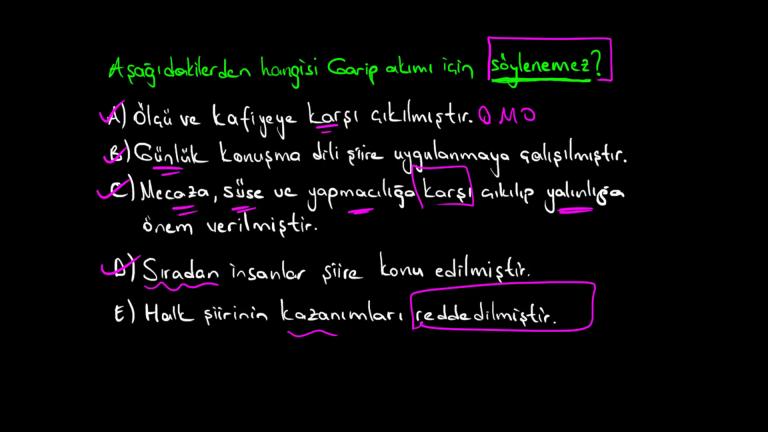 Aşağıdakilerden hangisi Garip akımı için söylenemez?
A) Ölçü ve kafiyeye karşı çıkılmıştır. OMO
B) Günlük konuşma dili şiire uygulanmaya çalışılmıştır.
C) Mecaza, süse ve yapmacılığa karşı çıkılıp yalınlığa
önem verilmiştir.
D) Sıradan insanlar şiire konu edilmiştir.
E) Halk şiirinin kazanımları reddedilmiştir.